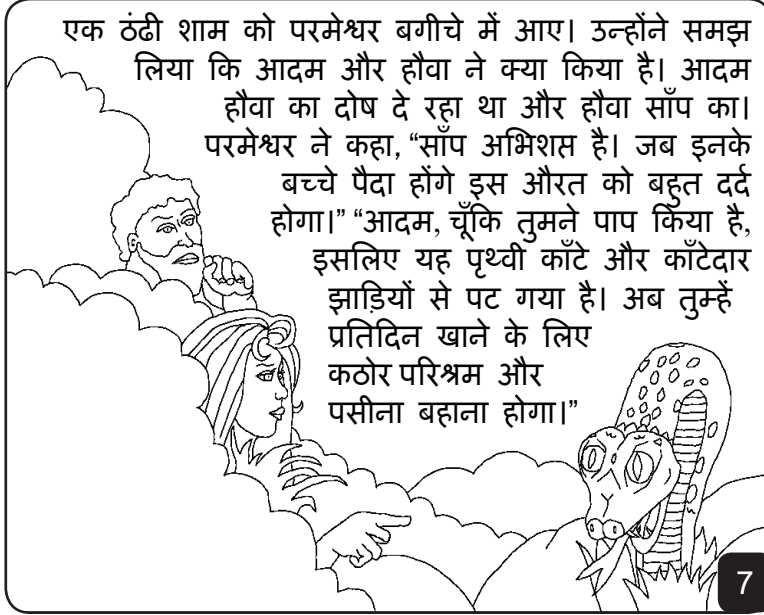 एक ठंढी शाम को परमेश्वर बगीचे में आए। उन्होंने समझ
लिया कि आदम और हौवा ने क्या किया है। आदम
हौवा का दोष दे रहा था और हौवा साँप का।
परमेश्वर ने कहा, “साँप अभिशप्त है। जब इनके
बच्चे पैदा होंगे इस औरत को बहुत दर्द
होगा।” “आदम, चूँकि तुमने पाप किया है,
इसलिए यह पृथ्वी काँटे और काँटेदार
झाड़ियों से पट गया है। अब तुम्हें
प्रतिदिन खाने के लिए
कठोर परिश्रम और
पसीना बहाना होगा।”
7